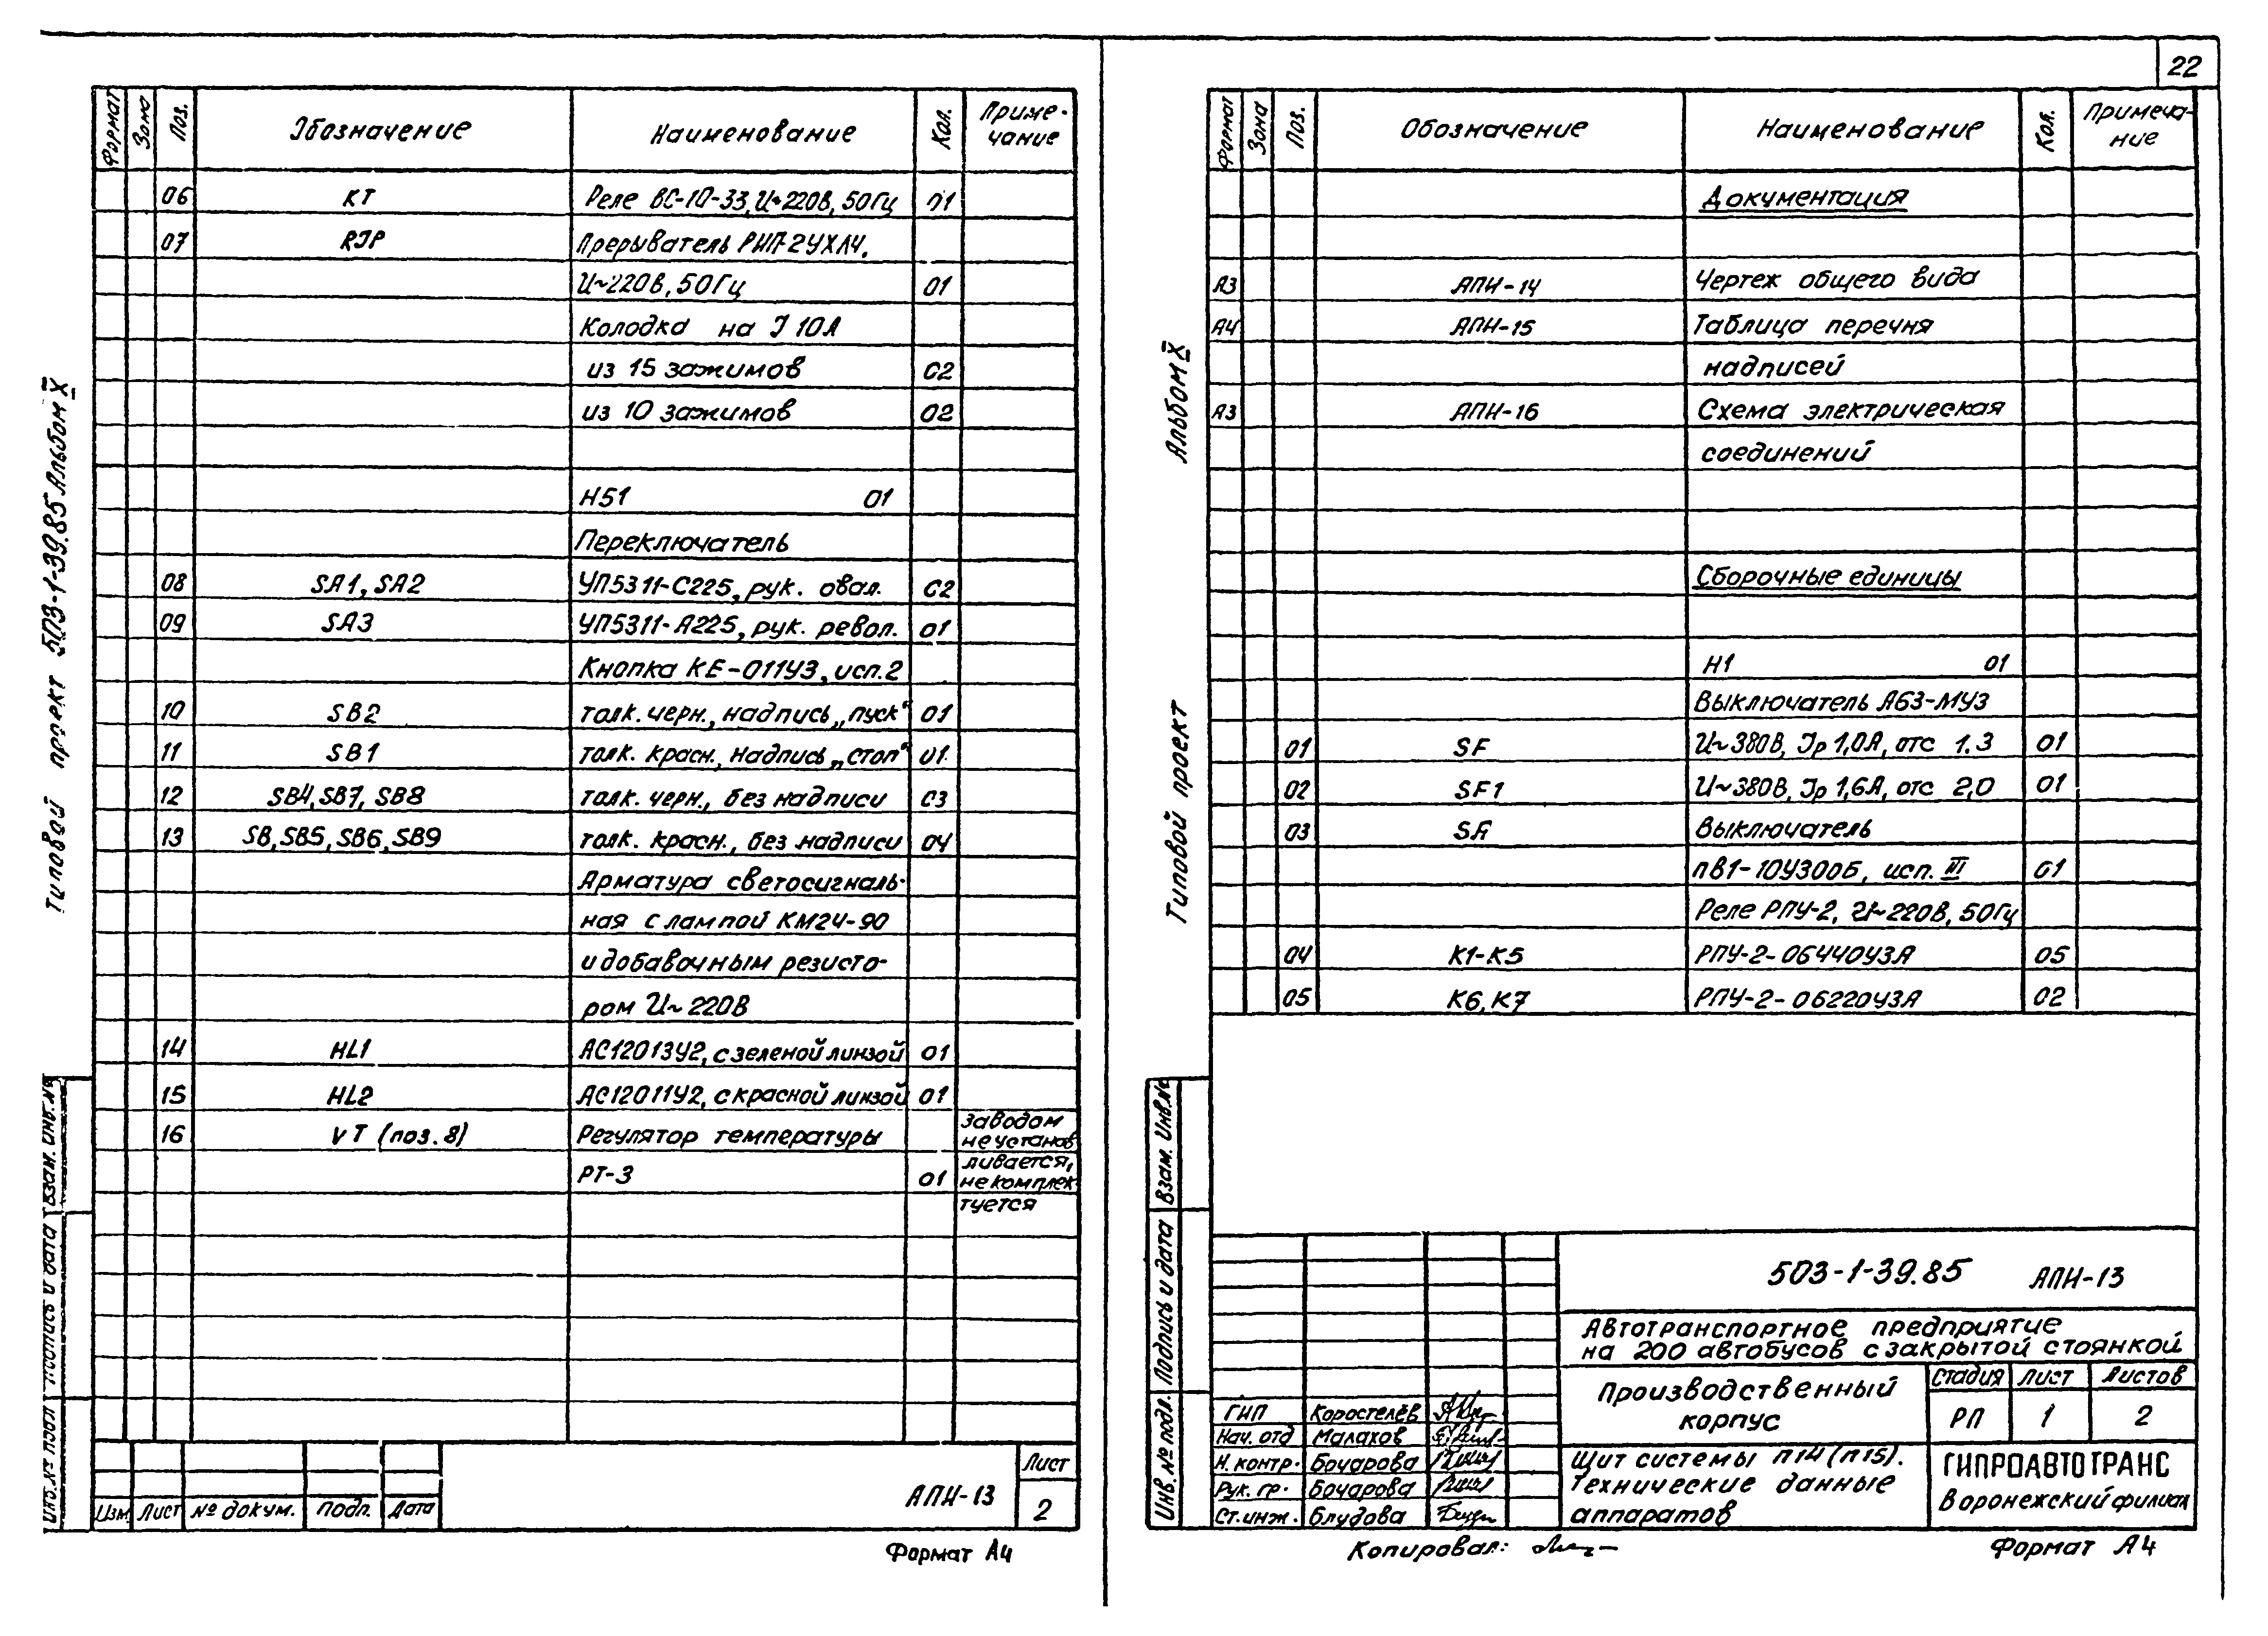 22
Типовой проект 503-1-39.85 Альбом X
Формат Зона Поз. Обозначение Наименование Кол. Приме-
чание
06 КТ Реле ВС-10-33, U~220В, 50Гц 01
07 RJP Прерыватель РИП-2УХЛ4,
U~220В, 50Гц 01
Колодка на J 10А
из 15 зажимов 02
из 10 зажимов 02
Н51 01
Переключатель
08 SA1, SA2 УП5311-С225, рук. овал. 02
09 SA3 УП5311-А225, рук. револ. 01
Кнопка КЕ-011У3, исп.2
10 SB2 толк. черн., надпись „пуск" 01
11 SB1 толк. красн., надпись „стоп" 01
12 SB4, SB7, SB8 толк. черн., без надписи 03
13 SB, SB5, SB6, SB9 толк. красн., без надписи 04
Арматура светосигналь-
ная с лампой КМ24-90
и добавочным резисто-
ром U~220В
14 HL1 АС12013У2, с зеленой линзой 01
15 HL2 АС12011У2, с красной линзой 01
16 VT (поз. 8) Регулятор температуры заводом
не установ
РТ-3 01 ливается,
не комплек
туется
Взам. инв.№
Подпись и дата
Инв.№ подл
Изм. Лист № докум. Подп. Дата
АПН-13
Лист
2
Формат А4
Типовой проект Альбом X
Формат Зона Поз. Обозначение Наименование Кол. Примеча-
ние
Документация
А3 АПН-14 Чертеж общего вида
А4 АПН-15 Таблица перечня
надписей
А3 АПН-16 Схема электрическая
соединений
Сборочные единицы
Н1 01
Выключатель А63-МУ3
01 SF U~380В, Jр 1,0А, отс 1.3 01
02 SF1 U~380В, Jр 1,6А, отс 2,0 01
03 SA Выключатель
пв1-10У300Б, исп. III 01
Реле РПУ-2, U~220В, 50Гц
04 К1-К5 РПУ-2-06440У3А 05
05 К6, К7 РПУ-2-06220У3А 02
Взам. Инв.№
Подпись и дата
Инв. № подл.
503-1-39.85 АПН-13
Автотранспортное предприятие
на 200 автобусов с закрытой стоянкой
Производственный
корпус
Стадия Лист Листов
РП 1 2
ГИП Коростелёв
Нач. отд Малахов
Н. контр. Бочарова
Рук. гр. Бочарова
Ст. инж. Блудова
Щит системы П14 (П15).
Технические данные
аппаратов
ГИПРОАВТОТРАНС
Воронежский филиал
Копировал:
Формат А4